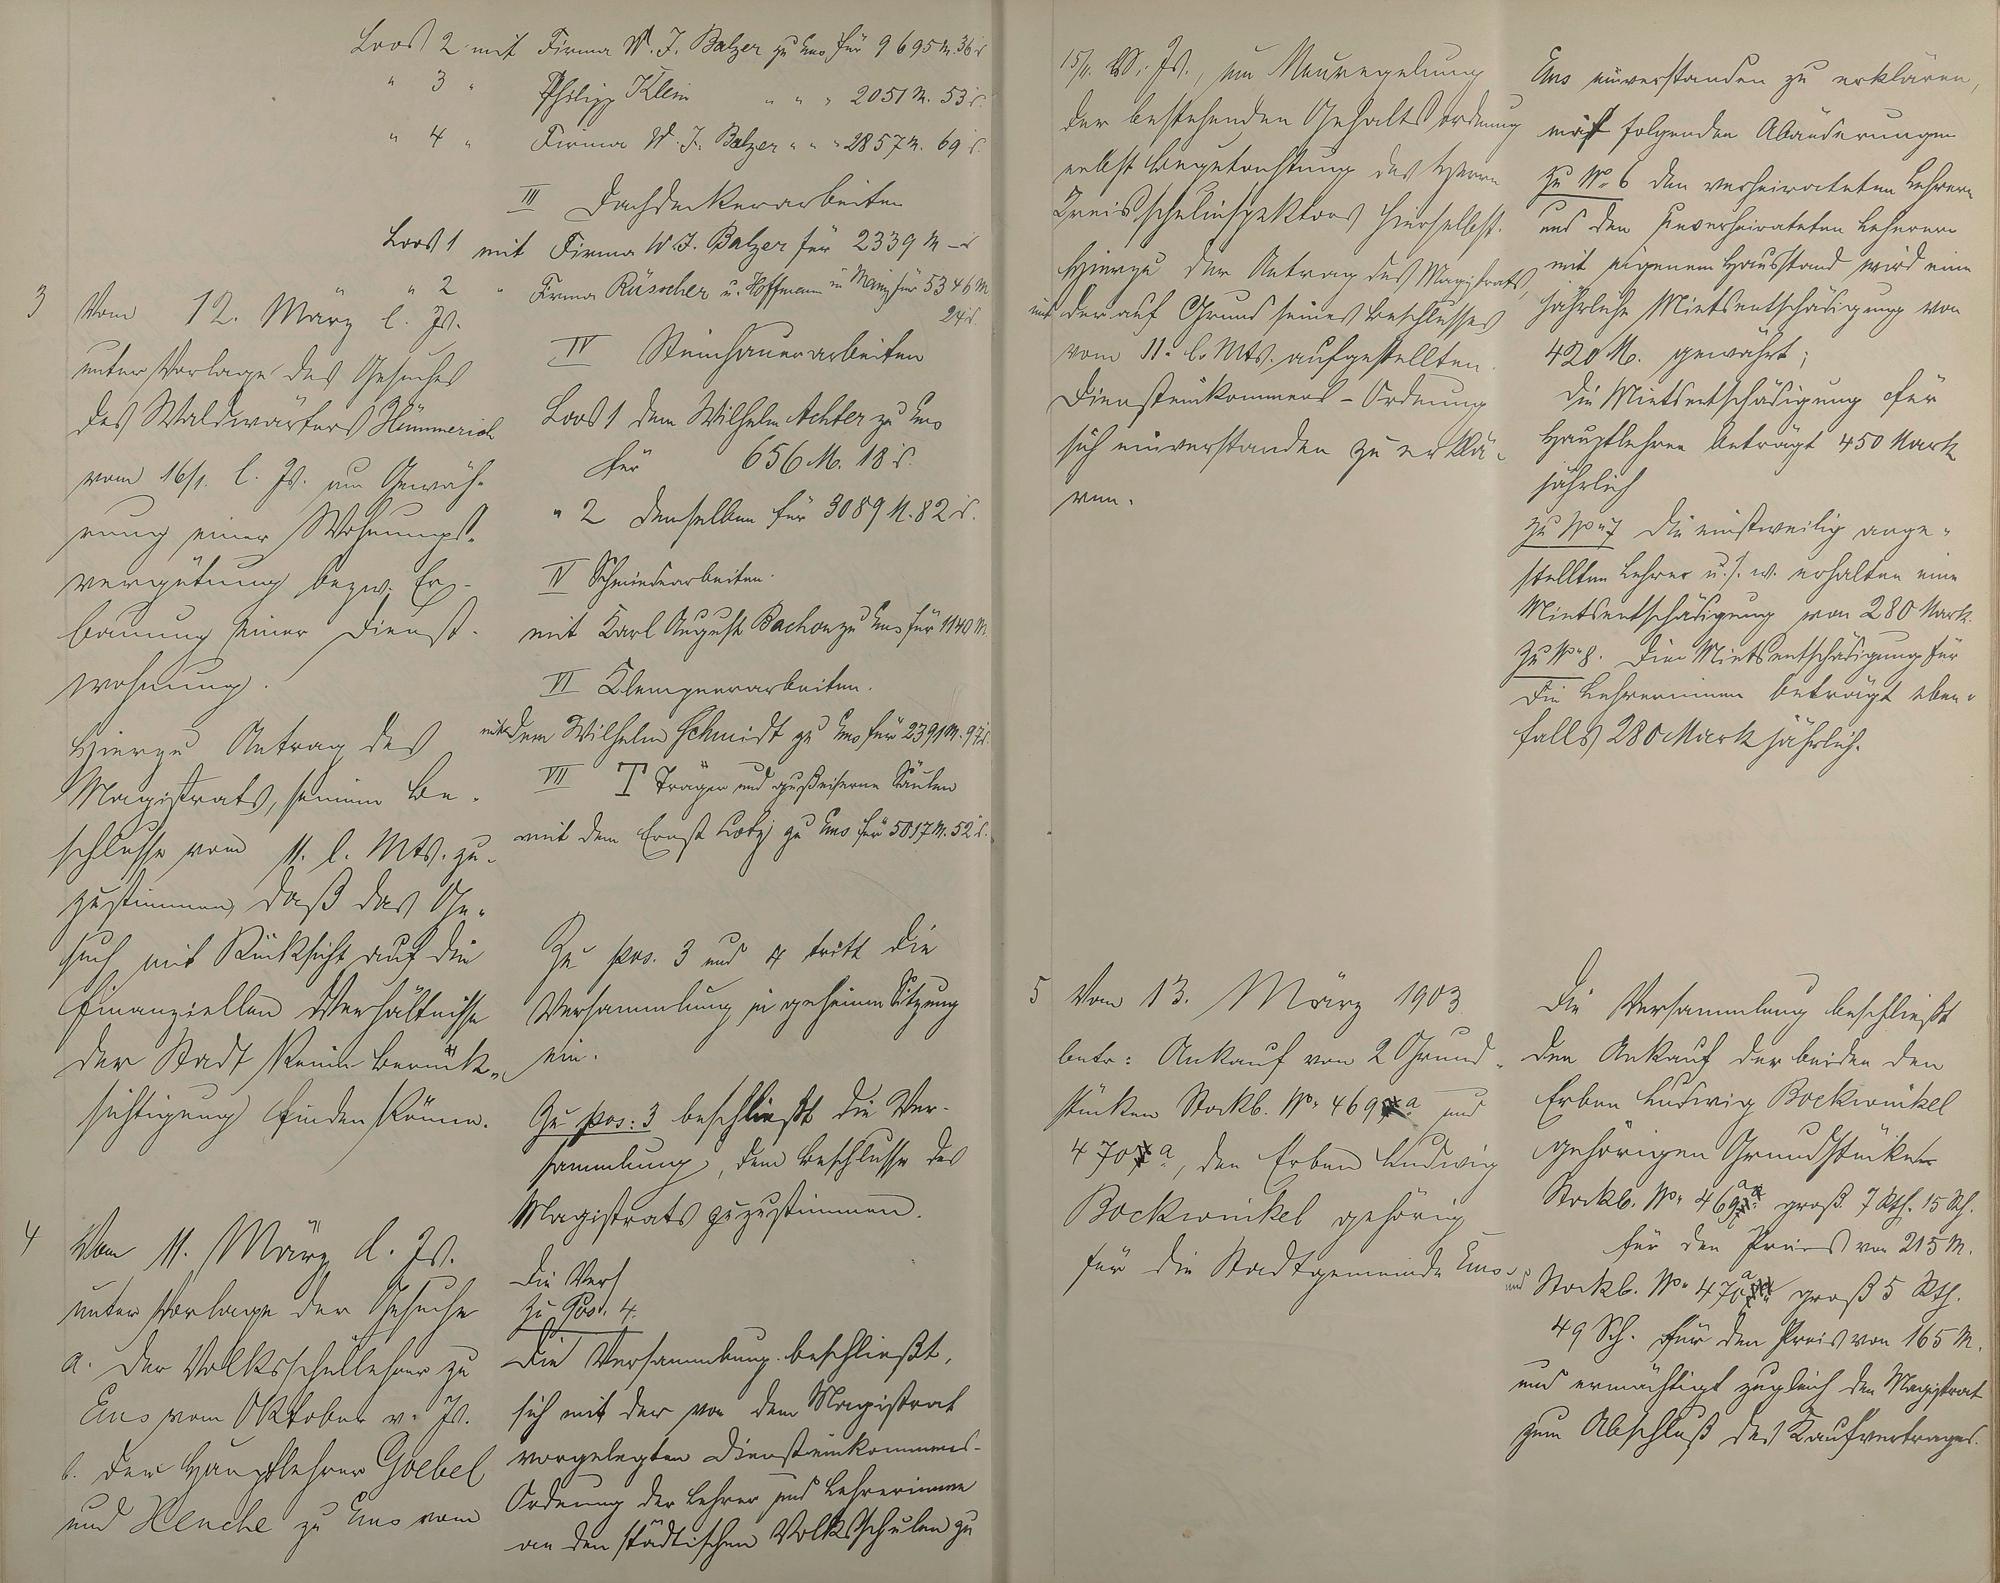 Loos 2 mit Firma W. J. Balzer zu Ems für 9695 M. 36 ₰
" 3 " Philipp Klein " " " 2051 M. 53 ₰.
" 4 " Firma W. J. Balzer " " " 2857 M. 69 ₰.
III Dachdeckerarbeiten
Loos 1 mit Firma W. J. Balzer für 2339 M – ₰
" 2 " Firma Rüsscher u. Hoffmann in Mainz für 5346 M
24 ₰.
IV Steinhauerarbeiten
Loos 1 dem Wilhelm Achter zu Ems
für 656 M. 18 ₰.
" 2 denselben für 3089 M. 82 ₰.
IV Schmiedearbeiten.
mit Karl August Bachon zu Ems für 1140 M
VI Klempnerarbeiten.
mit dem Wilhelm Schmidt zu Ems für 2391 M. 97 ₰.
VII T Träger und gußeiserne Säulen
mit dem Ernst zu Ems für 5017 M. 52 ₰.
3 Vom 12. März l. Js.
unter Vorlage des Gesuches
des Waldwärters Hümmerich
vom 16/1. l. Js. um Gewäh-
rung einer Wohnungs-
vergütung bezw. Er-
bauung einer Dienst-
wohnung.
Hierzu Antrag des
Magistrats, seinem Be-
schlusse vom 11. l. Mts. zu-
zustimmen, daß das Ge-
such mit Rücksicht auf die
finanziellen Verhältnisse
der Stadt keine Berück-
sichtigung finden könne.
Zu pos. 3 und 4 tritt die
Versammlung in geheime Sitzung
ein.
Zu pos: 3 beschließt die Ver-
sammlung, dem Beschlusse des
Magistrats zuzustimmen.
4 Vom 11. März l. Js.
unter Vorlage der Gesuche
a. der Volksschullehrer zu
Ems vom Oktober v. Js.
b. der Hauptlehrer Goebel
und Henche zu Ems vom
Die Vers
Zu Pos. 4.
Die Versammlung beschließt,
sich mit der von dem Magistrat
vorgelegten Diensteinkommens-
Ordnung der Lehrer und Lehrerinnen
an den städtischen Volksschulen zu
15/1. Js., um Neuregelung
der bestehenden Gehaltsordnung
nebst Begutachtung des Herrn
Kreisschulinspektors hierselbst.
Hierzu der Antrag des Magistrats,
mit der auf Grund seines Beschlusses
vom 11. l. Mts. aufgestellten
Diensteinkommens-Ordnung
sich einverstanden zu erklä-
ren.
Ems einverstanden zu erklären,
mit folgenden Abänderungen
zu No 6 den verheirateten Lehrern
und den unverheirateten Lehrern
mit eigenem Hausstand wird eine
jährliche Mietsentschädigung von
420 M. gewährt;
Die Mietsentschädigung für
Hauptlehrer beträgt 450 Mark
jährlich
zu No 7 Die einstweilig ange-
stellten Lehrer u. s. w. erhalten eine
Mietsentschädigung von 280 Mark.
zu No 8. Die Mietsentschädigung für
die Lehrerinnen beträgt eben-
falls 280 Mark jährlich.
5 Vom 13. März 1903
betr: Ankauf von 2 Grund-
stücken Stockb. No 469 a und
470 a, den Erben Ludwig
Bockwinkel gehörig
für die Stadtgemeinde Ems.
Die Versammlung beschließt
den Ankauf der beiden den
Erben Ludwig Bockwinkel
gehörigen Grundstücke
Stockb. No 469 a groß 7 Rth. 15 Sch.
für den Preis von 215 M.
und Stockb. No 470 a groß 5 Rth.
49 Sch. für den Preis von 165 M.
und ermächtigt zugleich den Magistrat
zum Abschluß des Kaufvertrages.